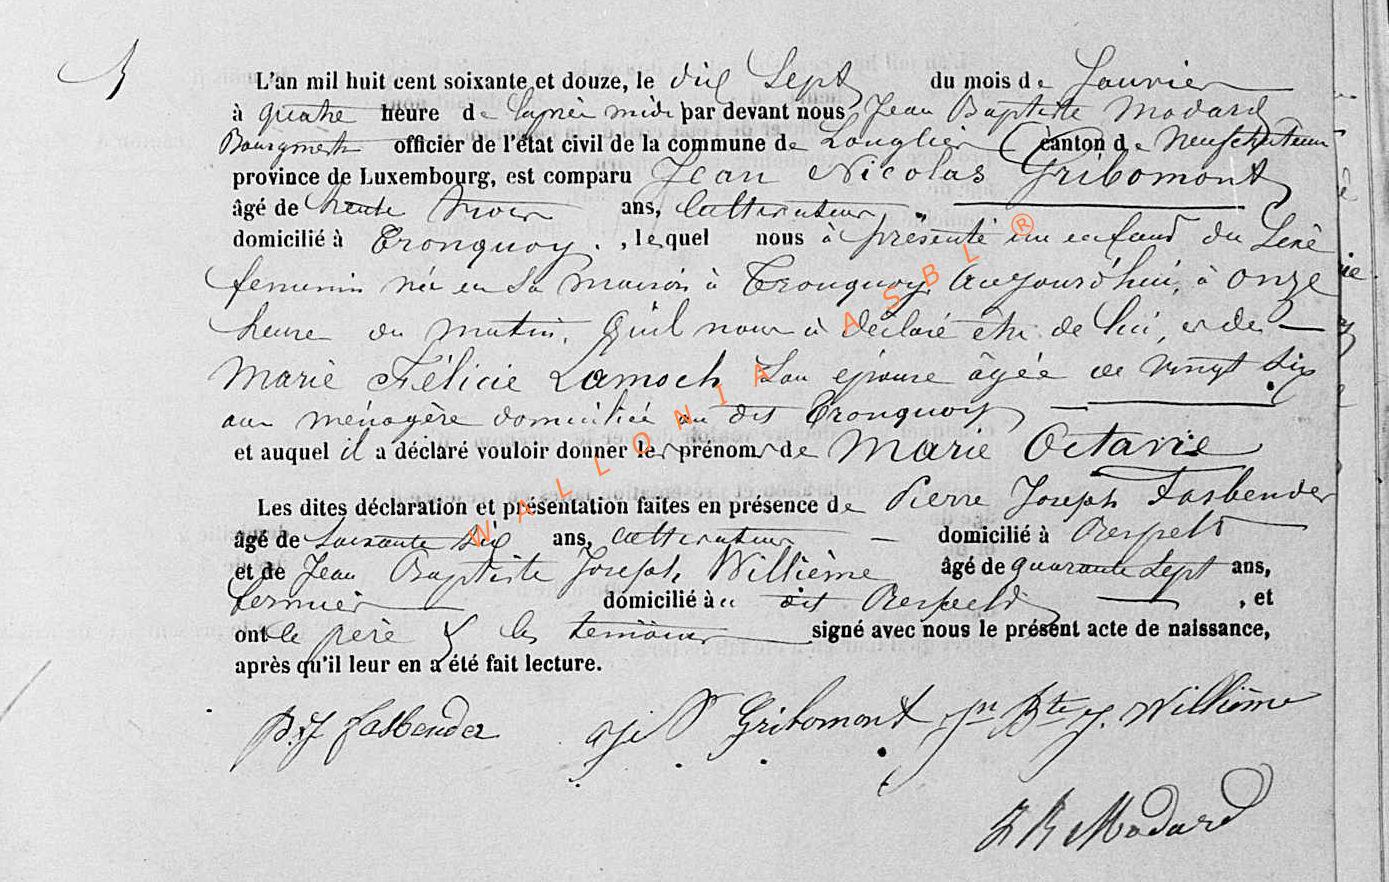 5
L'an mil huit cent soixante et douze, le dix Sept du mois de Janvier
à quatre heure de l'aprèr midi par devant nous Jean Baptiste Modard
Bourgmestre officier de l'état civil de la commune de Longlier canton de Neufchateau
province de Luxembourg, est comparu Jean Nicolas Gribomont
âgé de trente trois ans, Cultivateur
domicilié à Tronquoy, lequel nous à présenté un enfant du Sexe
feminin née en Sa maison à Tronquoy Aujourd'hui, à onze
heure du matin, Qu'il nous a déclaré être de lui, et de
Marie Félicie Lamock Son épouse âgée de vingt six
ans ménagère domiciliée au dit Tronquoy
et auquel il a déclaré vouloir donner les prénoms de Marie Octavie
Les dites déclaration et présentation faites en présence de Pierre Joseph Fasbender
âgé de Soixante six ans, cultivateur domicilié à Respelt
et de Jean Baptiste Joseph Willième âgé de quarante Sept ans,
fermier domicilié à u dit Respelt, et
ont le père & les temoins signé avec nous le présent acte de naissance,
après qu'il leur en a été fait lecture.
P. J Fasbender Gribomont Jn Bte J. Willième
J B Modard
WALLONIA ASBL ®